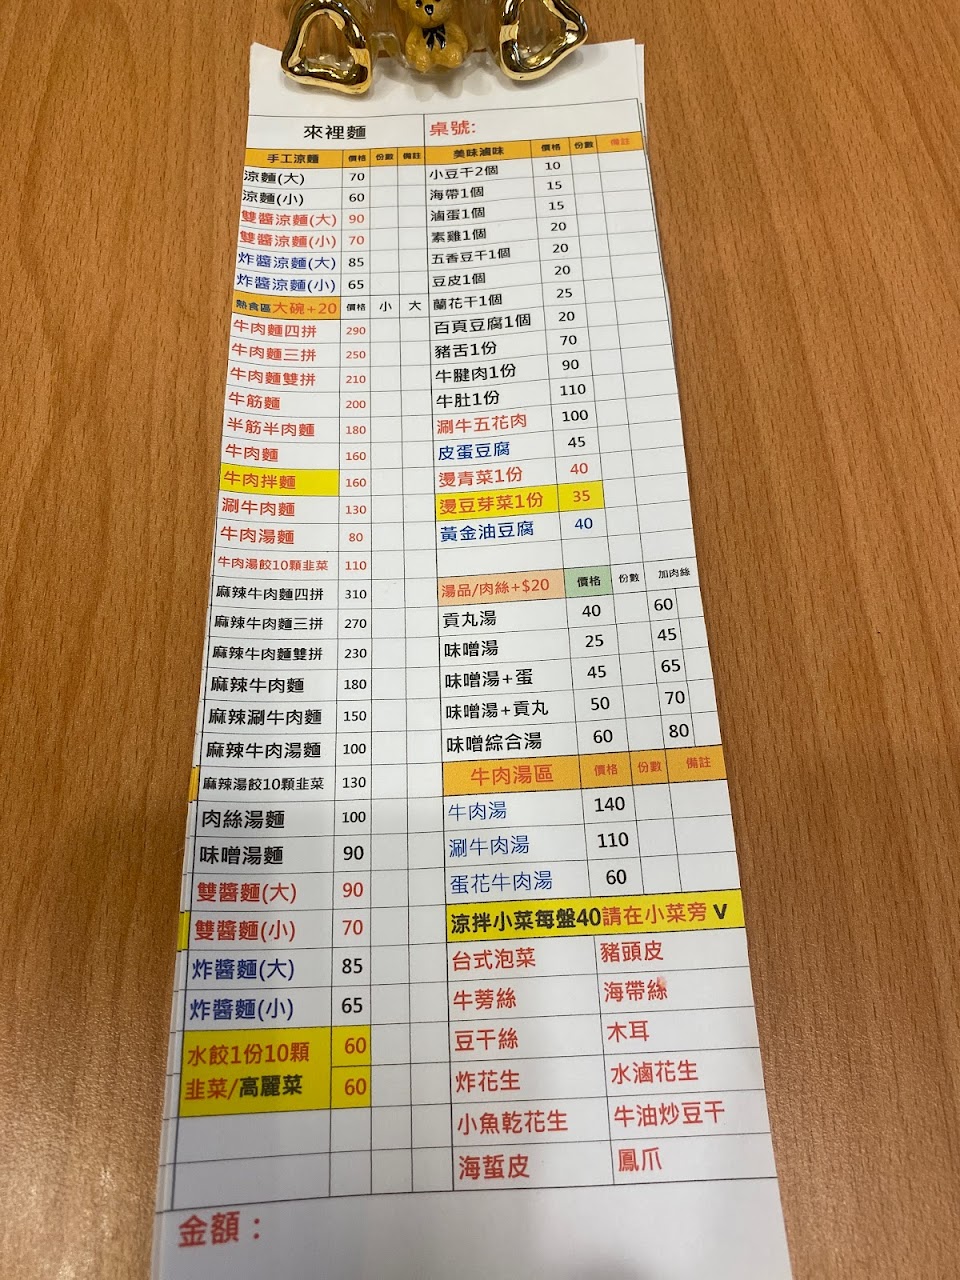 來裡麵 桌號:
手工涼麵 價格 份數 備註
涼麵(大) 70
涼麵(小) 60
雙醬涼麵(大) 90
雙醬涼麵(小) 70
炸醬涼麵(大) 85
炸醬涼麵(小) 65
熱食區大碗+20 價格 小 大
牛肉麵四拼 290
牛肉麵三拼 250
牛肉麵雙拼 210
牛筋麵 200
半筋半肉麵 180
牛肉麵 160
牛肉拌麵 160
涮牛肉麵 130
牛肉湯麵 80
牛肉湯餃10顆韭菜 110
麻辣牛肉麵四拼 310
麻辣牛肉麵三拼 270
麻辣牛肉麵雙拼 230
麻辣牛肉麵 180
麻辣涮牛肉麵 150
麻辣牛肉湯麵 100
麻辣湯餃10顆韭菜 130
肉絲湯麵 100
味噌湯麵 90
雙醬麵(大) 90
雙醬麵(小) 70
炸醬麵(大) 85
炸醬麵(小) 65
水餃1份10顆 60
韭菜/高麗菜 60
美味滷味 價格 份數 備註
小豆干2個 10
海帶1個 15
滷蛋1個 15
素雞1個 20
五香豆干1個 20
豆皮1個 20
蘭花干1個 25
百頁豆腐1個 20
豬舌1份 70
牛腱肉1份 90
牛肚1份 110
涮牛五花肉 100
皮蛋豆腐 45
燙青菜1份 40
燙豆芽菜1份 35
黃金油豆腐 40
湯品/肉絲+$20 價格 份數 加肉絲
貢丸湯 40 60
味噌湯 25 45
味噌湯+蛋 45 65
味噌湯+貢丸 50 70
味噌綜合湯 60 80
牛肉湯區 價格 份數 備註
牛肉湯 140
涮牛肉湯 110
蛋花牛肉湯 60
涼拌小菜每盤40請在小菜旁 V
台式泡菜 豬頭皮
牛蒡絲 海帶絲
豆干絲 木耳
炸花生 水滷花生
小魚乾花生 牛油炒豆干
海蜇皮 鳳爪
金額：